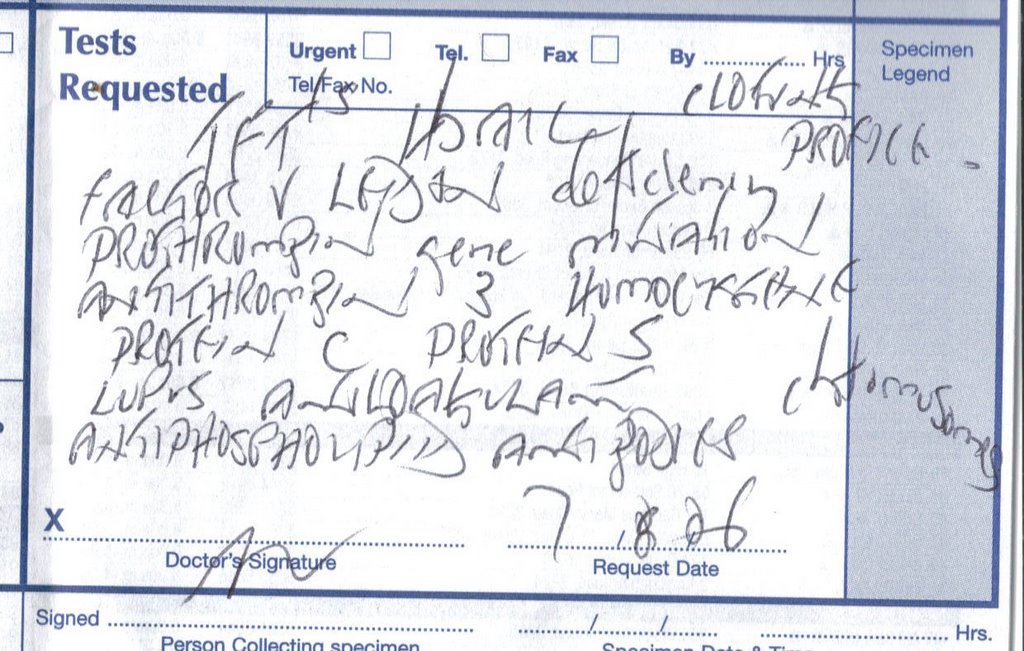 Tests Requested
Urgent Tel. Fax By ............ Hrs
Tel/Fax No.
Specimen Legend
TFTs HbA1c clotting
PROFILE -
FACTOR V LEIDEN deficiency
PROTHROMBIN gene mutation
ANTITHROMBIN 3 HOMOCYSTEINE
PROTEIN C PROTEIN S
LUPUS ANTICOAGULANT chromosomes
ANTIPHOSPHOLIPID ANTIBODIES
X
7 / 8 26
Doctor's Signature Request Date
Signed
/ / Hrs.
Person Collecting specimen Specimen Date & Time